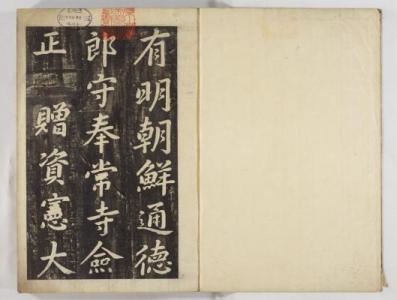 有明朝鮮通德
郎守奉常寺僉
正贈資憲大